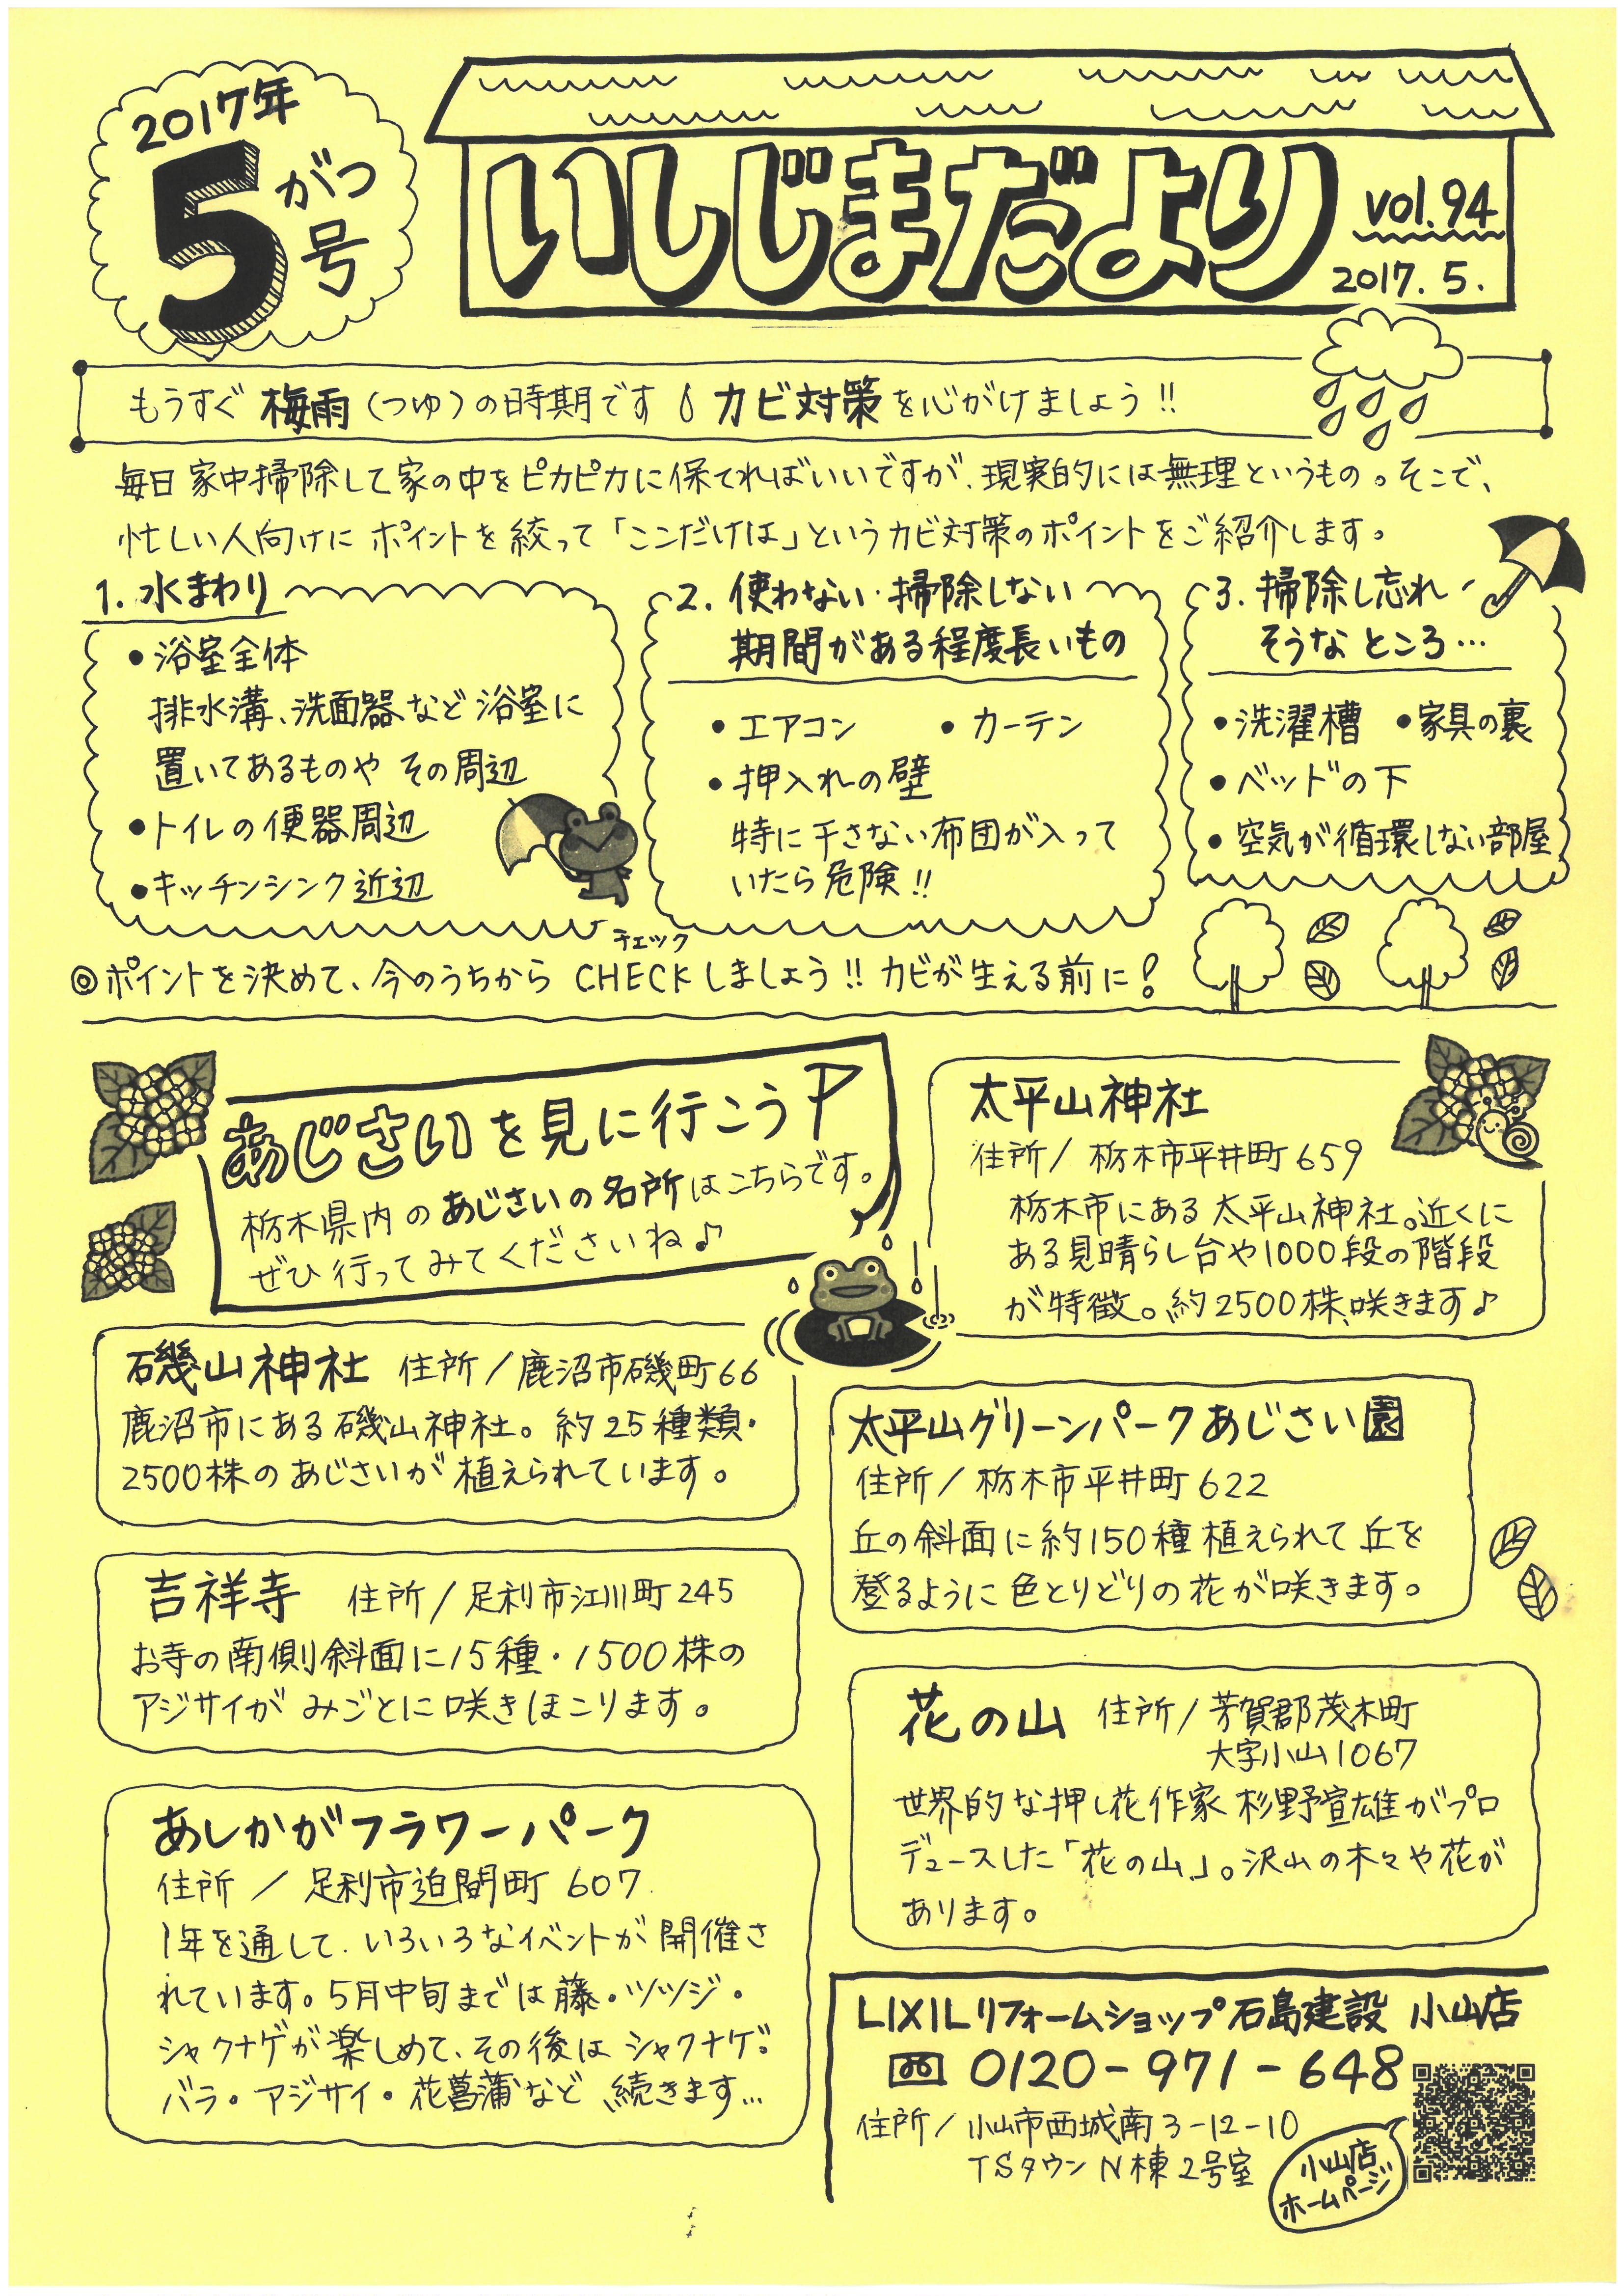 2017年
5がつ号
いしじまだより
vol.94
2017.5.
もうすぐ 梅雨(つゆ)の時期です カビ対策を心がけましょう!!
毎日 家中掃除して家の中をピカピカに保てればいいですが、現実的には無理というもの。そこで、
忙しい人向けに ポイントを絞って「ここだけは」というカビ対策のポイントをご紹介します。
1. 水まわり
• 浴室全体
排水溝、洗面器など浴室に
置いてあるものや その周辺
• トイレの便器周辺
• キッチンシンク近辺
2. 使わない・掃除しない
期間がある程度長いもの
• エアコン • カーテン
• 押入れの壁
特に干さない布団が入って
いたら危険!!
3. 掃除し忘れ
そうなところ…
• 洗濯槽 • 家具の裏
• ベッドの下
• 空気が循環しない部屋
チェック
◎ポイントを決めて、今のうちから CHECKしましょう!! カビが生える前に!
あじさいを見に行こう
栃木県内のあじさいの名所はこちらです。
ぜひ行ってみてくださいね♪
太平山神社
住所/ 栃木市平井町659
栃木市にある太平山神社。近くに
ある見晴らし台や1000段の階段
が特徴。約2500株、咲きます♪
磯山神社 住所/鹿沼市磯町66
鹿沼市にある磯山神社。約25種類・
2500株のあじさいが植えられています。
太平山グリーンパークあじさい園
住所/ 栃木市平井町622
丘の斜面に約150種植えられて丘を
登るように色とりどりの花が咲きます。
吉祥寺 住所/足利市江川町245
お寺の南側斜面に15種・1500株の
アジサイがみごとに咲きほこります。
花の山 住所/芳賀郡茂木町
大字小山1067
世界的な押し花作家 杉野宣雄がプロ
デュースした「花の山」。沢山の木々や花が
あります。
あしかがフラワーパーク
住所 / 足利市迫間町 607
1年を通して、いろいろなイベントが開催さ
れています。5月中旬までは藤・ツツジ・
シャクナゲが楽しめて、その後はシャクナゲ・
バラ・アジサイ・花菖蒲など続きます…
LIXILリフォームショップ石島建設 小山店
0120-971-648
住所/ 小山市西城南3-12-10
TSタウン N棟2号室
小山店
ホームページ